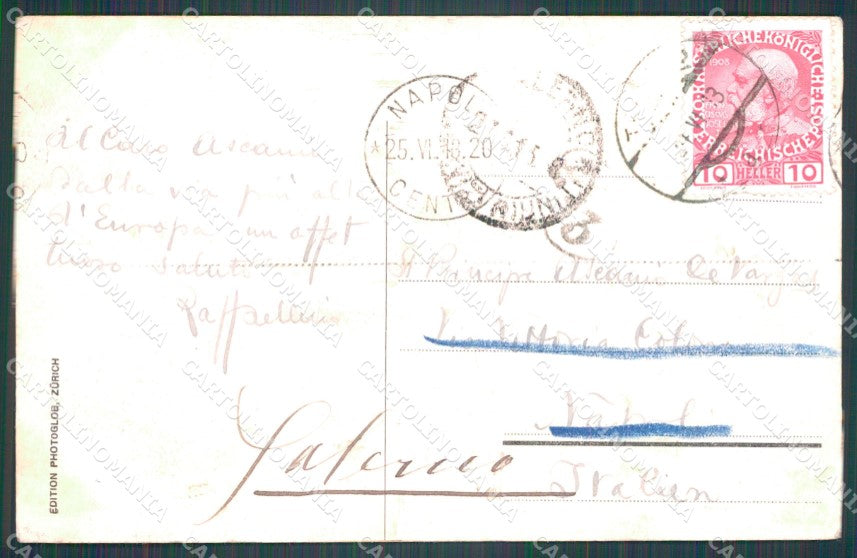 Al Caro Ascanio
dalla via più alta
d'Europa un affet
tuoso saluto
Raffaellino
EDITION PHOTOGLOB, ZÜRICH
NAPOLI
* 25.VI.13.20
CENT
1908
HELLER
10 10
Al Principe Ascanio de Vargas
Via Vittoria Colonna
Napoli
Salerno
Italien
CARTOLINOMANIA